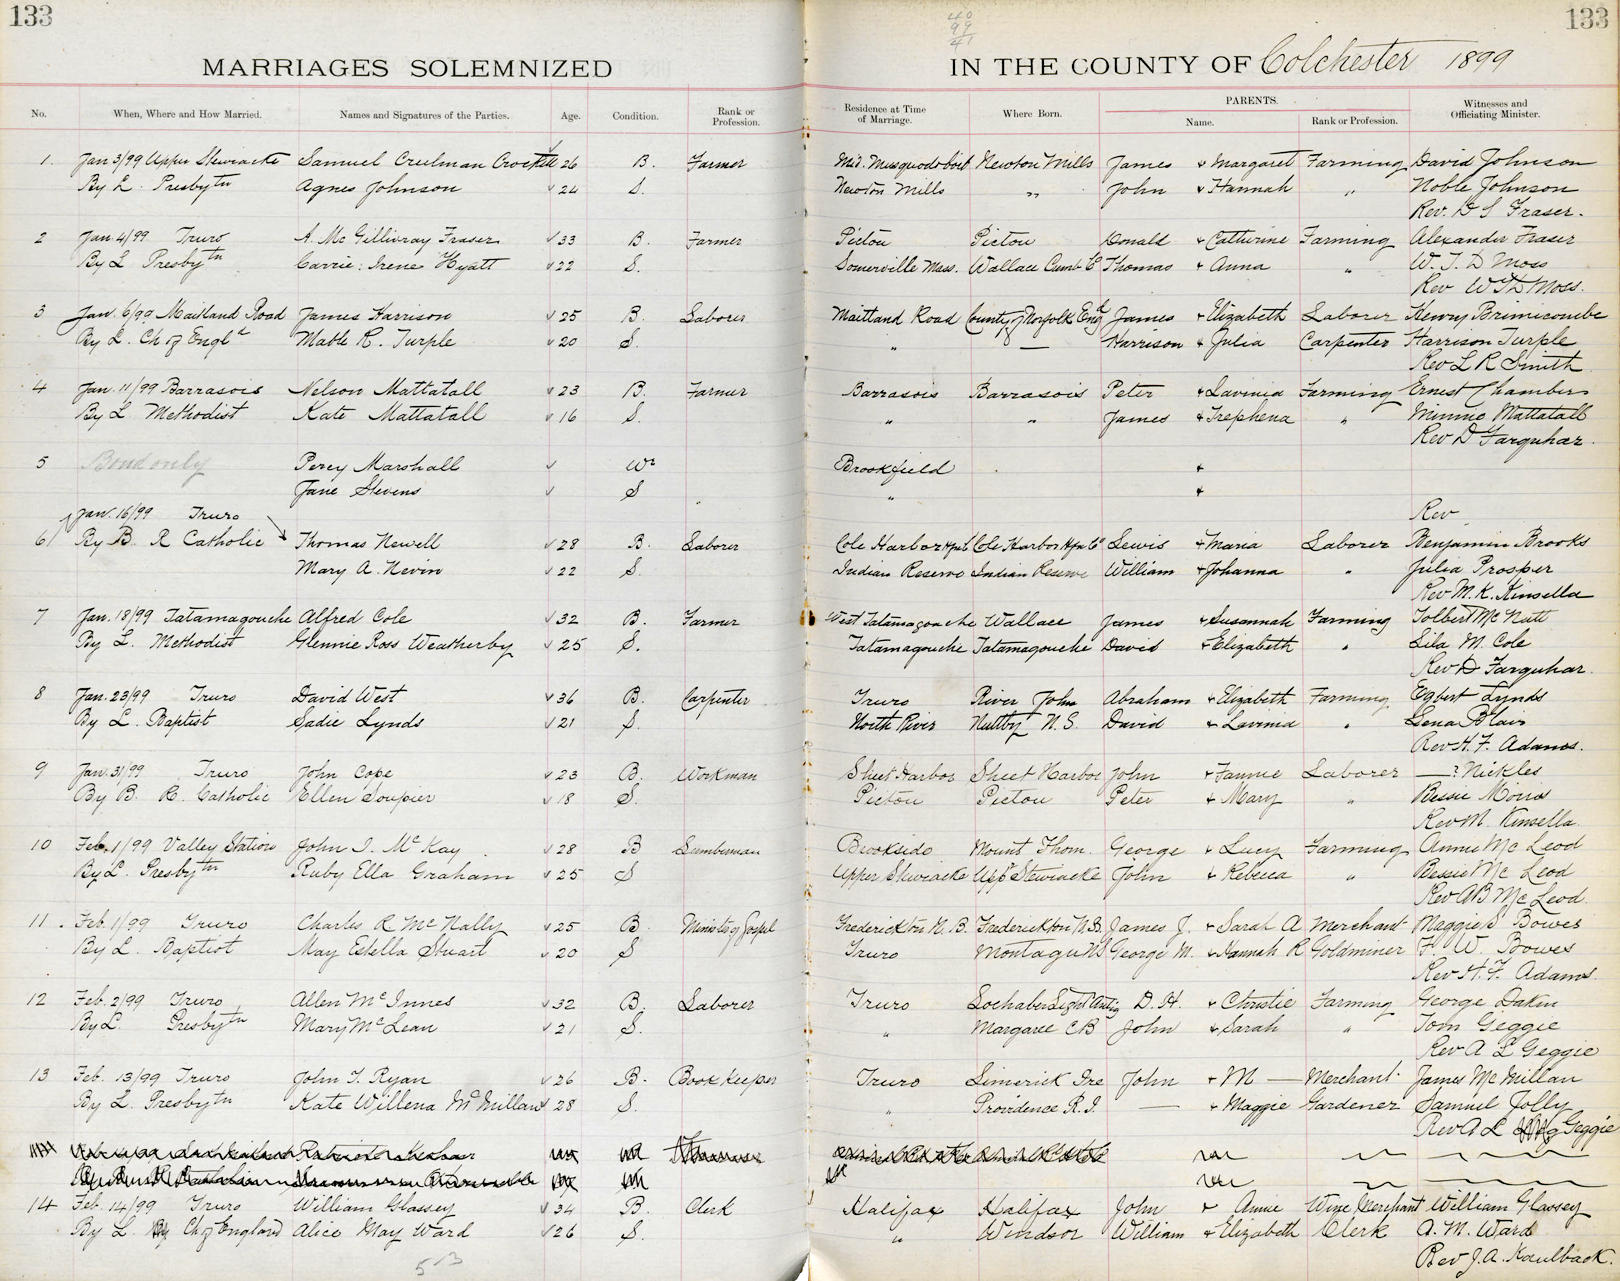 133
133
40
99
41
MARRIAGES SOLEMNIZED IN THE COUNTY OF Colchester 1899
No. When, Where and How Married. Names and Signatures of the Parties. Age. Condition. Rank or Profession. Residence at Time of Marriage. Where Born. PARENTS. Name. Rank or Profession. Witnesses and Officiating Minister.
1 Jan 3/99 Upper Stewiacke Samuel Creelman Crockett 26 B. Farmer Mid. Musquodoboit Newton Mills James & Margaret Farming David Johnson
By L. Presbytn Agnes Johnson 24 S. Newton Mills " John & Hannah " Noble Johnson
Rev. D S Fraser.
2 Jan 4/99 Truro A. McGillivray Fraser 33 B. Farmer Pictou Pictou Donald & Catherine Farming Alexander Fraser
By L Presbytn Carrie Irene Hyatt 22 S. Somerville Mass. Wallace Cumb Co Thomas & Anna " W. T. D Moss
Rev W T D Moss.
3 Jan. 6/99 Maitland Road James Harrison 25 B. Laborer Maitland Road County of Norfolk Engd James & Elizabeth Laborer Henry Brimicombe
By L. Ch of Engld Mable R. Turple 20 S. " — Harrison & Julia Carpenter Harrison Turple
Rev L R Smith
4 Jan. 11/99 Barrasois Nelson Mattatall 23 B. Farmer Barrasois Barrasois Peter & Lavinia Farming Ernest Chambers
By L Methodist Kate Mattatall 16 S. " " James & Trephena " Minnie Mattatall
Rev D Farquhar
5 Bond only Percy Marshall Wr Brookfield &
Jane Stevens S " &
Rev
Jan. 16/99 Truro
6 By B. R Catholic Thomas Newell 28 B. Laborer Cole Harbor Hfx Co Cole Harbor Hfx Co Lewis & Maria Laborer Benjamin Brooks
Mary A. Nevin 22 S. Indian Reserve Indian Reserve William & Johanna " Julia Prosper
Rev M. K. Kinsella
7 Jan. 18/99 Tatamagouche Alfred Cole 32 B. Farmer West Tatamagouche Wallace James & Susannah Farming Tolbert McNutt
By L. Methodist Glennie Ross Weatherby 25 S. Tatamagouche Tatamagouche David & Elizabeth " Lila M. Cole
Rev D Farquhar
8 Jan. 23/99 Truro David West 36 B. Carpenter Truro River John Abraham & Elizabeth Farming Egbert Lynds
By L. Baptist Sadie Lynds 21 S. North River Nuttby N. S. David & Lavinia " Lena Blair
Rev H. F. Adams.
9 Jan. 31/99 Truro John Cope 23 B. Workman Sheet Harbor Sheet Harbor John & Fannie Laborer —? Nickles
By B. R. Catholic Ellen Soupier 18 S. Pictou Pictou Peter & Mary " Bessie Morris
Rev M. Kinsella
10 Feb. 1/99 Valley Station John J. McKay 28 B Lumberman Brookside Mount Thom. George & Lucy Farming Annie McLeod
By L. Presbytn Ruby Ella Graham 25 S Upper Stewiacke Uppr Stewiacke John & Rebecca " Bessie McLeod
Rev A B McLeod
11 Feb. 1/99 Truro Charles R McNally 25 B. Minister of Gospel Frederickton N. B. Frederickton N. B. James J. & Sarah A Merchant Maggie S Bowes
By L. Baptist May Estella Stuart 20 S Truro Montagu NS George M. & Hannah R Goldminer F. W. Bowes
Rev H. F. Adams
12 Feb. 2/99 Truro Allen McInnes 32 B. Laborer Truro Lochaber Antig D. H. & Christie Farming George Dakin
By L. Presbytn Mary McLean 21 S. " Margaree C B John & Sarah " Tom Geggie
Rev A L Geggie
13 Feb. 13/99 Truro John T. Ryan 26 B. Book Keeper Truro Limerick Ire John & M — Merchant James McMillan
By L. Presbytn Kate Willena McMillan 28 S. " Providence R. I. — & Maggie Gardener Samuel Jolly
Rev A L Geggie
14 Feb. 14/99 Truro William Glassey 34 B. Clerk Halifax Halifax John & Annie Wine Merchant William Glassey
By L. Ch of England Alice May Ward 26 S. " Windsor William & Elizabeth Clerk A. M. Ward
Rev J. A. Kaulback.